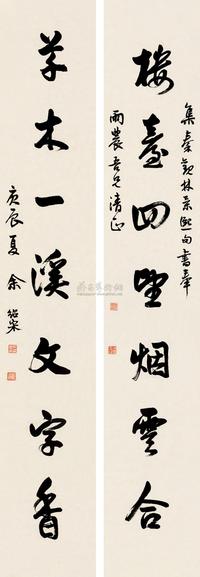 集秦观林景熙句书奉
楼台四望烟云合
雨农吾兄清正
草木一溪文字香
庚辰夏余绍宋